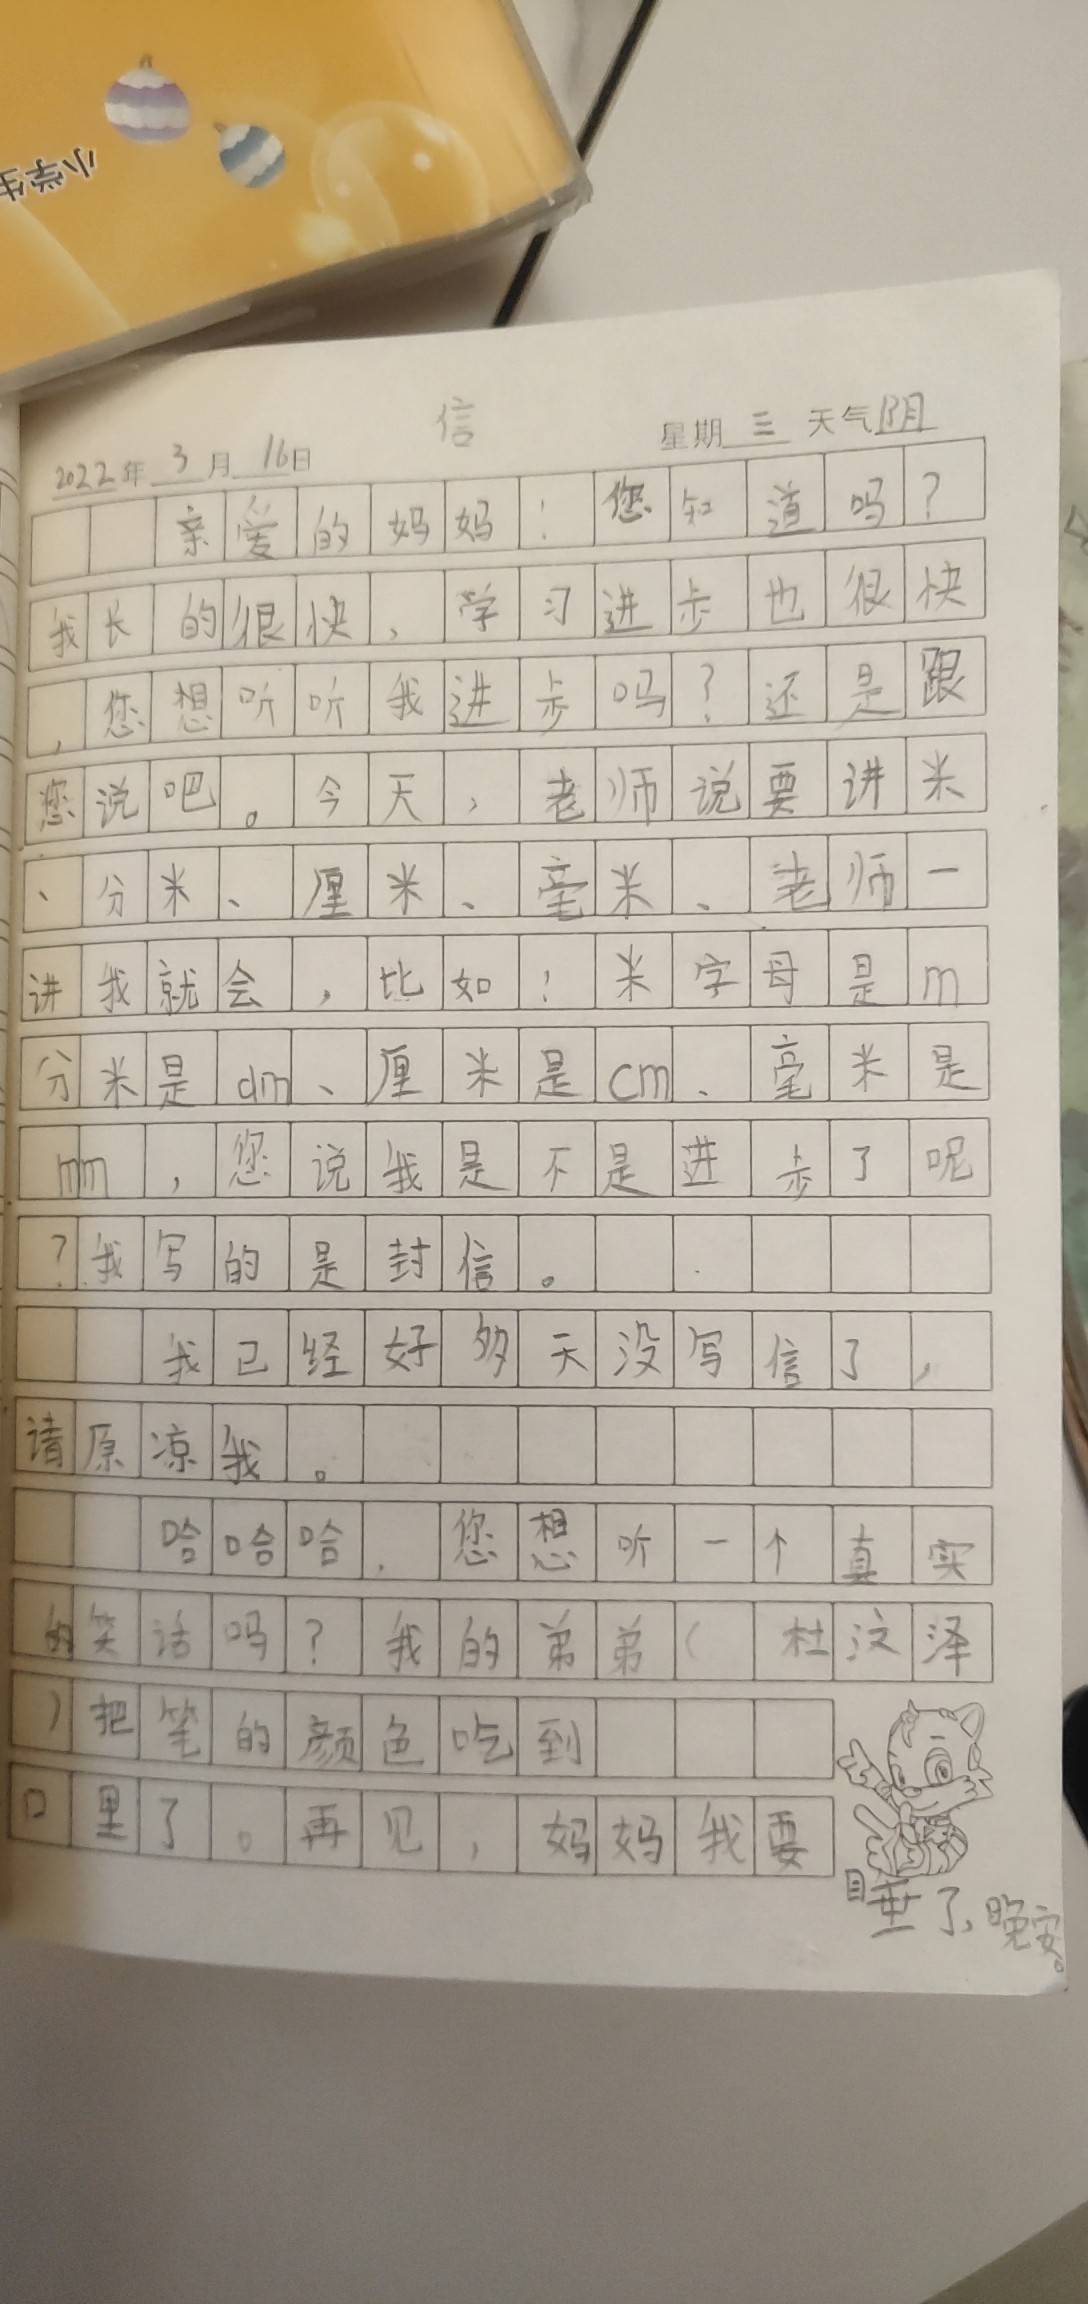 小学生
信
2022年3月16日 星期三 天气阴
亲爱的妈妈！您知道吗？
我长的很快，学习进步也很快
，您想听听我进步吗？还是跟
您说吧。今天，老师说要讲米
、分米、厘米、毫米、老师一
讲我就会，比如：米字母是m
分米是dm、厘米是cm、毫米是
mm，您说我是不是进步了呢
？我写的是封信。
我已经好多天没写信了，
请原凉我。
哈哈哈，您想听一个真实
的笑话吗？我的弟弟（杜汶泽
）把笔的颜色吃到
口里了。再见，妈妈我要
睡了，晚安。